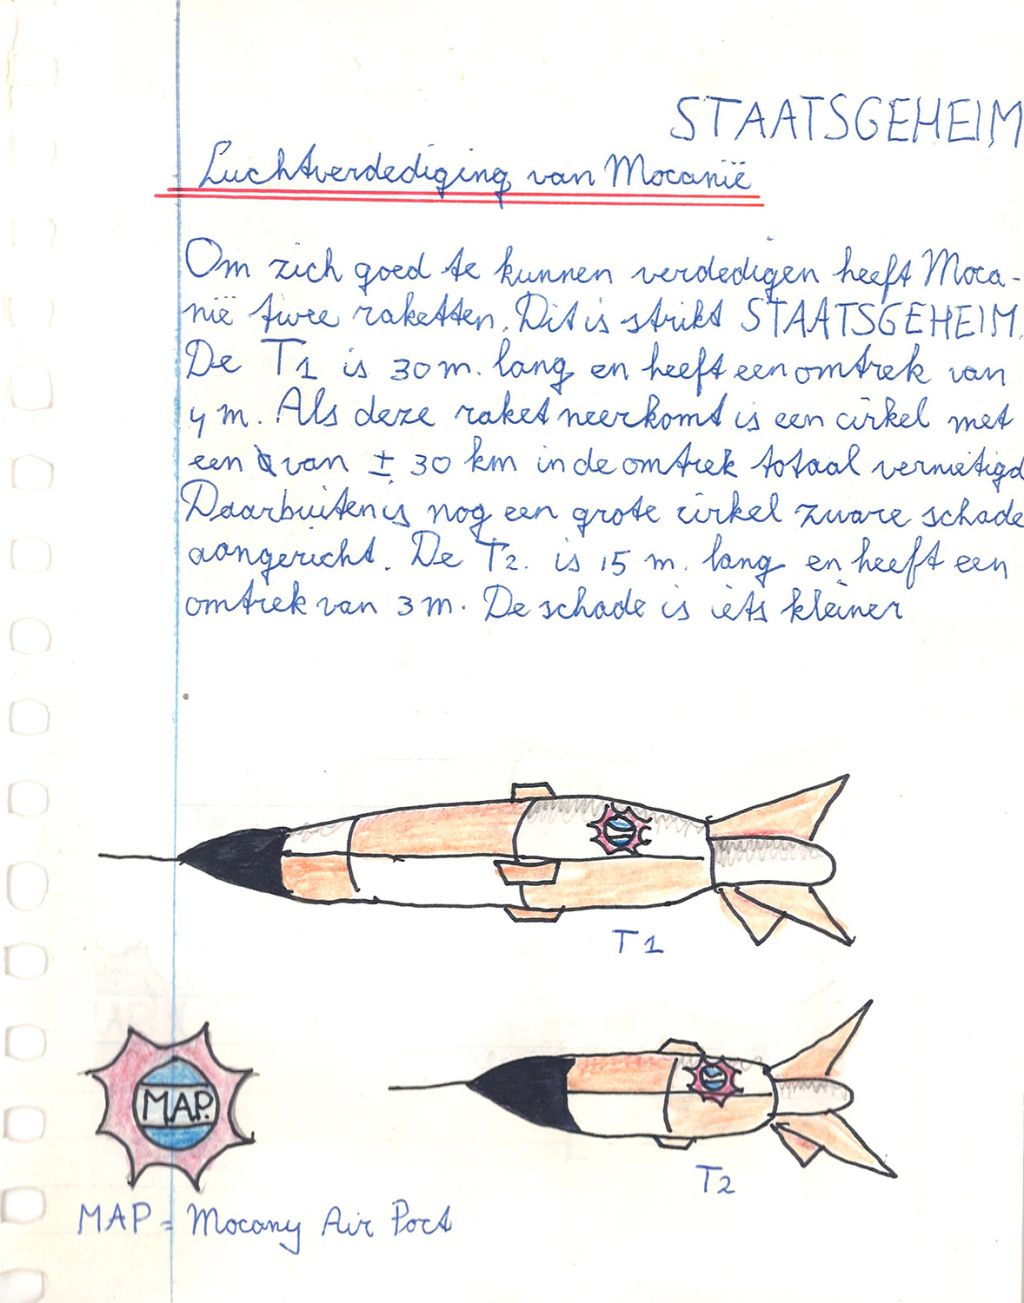 STAATSGEHEIM
Luchtverdediging van Mocanië
Om zich goed te kunnen verdedigen heeft Moca-
nië twee raketten. Dit is strikt STAATSGEHEIM.
De T1 is 30 m. lang en heeft een omtrek van
4 m. Als deze raket neerkomt is een cirkel met
een van ± 30 km in de omtrek totaal vernietigd
Daarbuiten is nog een grote cirkel zware schade
aangericht. De T2. is 15 m. lang en heeft een
omtrek van 3 m. De schade is iets kleiner
T1
MAP.
T2
MAP = Mocany Air Port